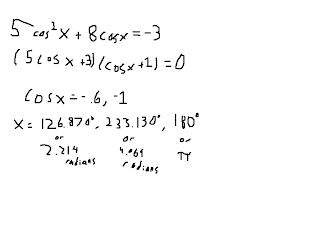 5 cos²x + 8cosx = -3
(5cosx+3)(cosx+1)=0
cosx = -.6, -1
x = 126.870°, 233.130°, 180°
or or or
2.214 radians 4.069 radians π